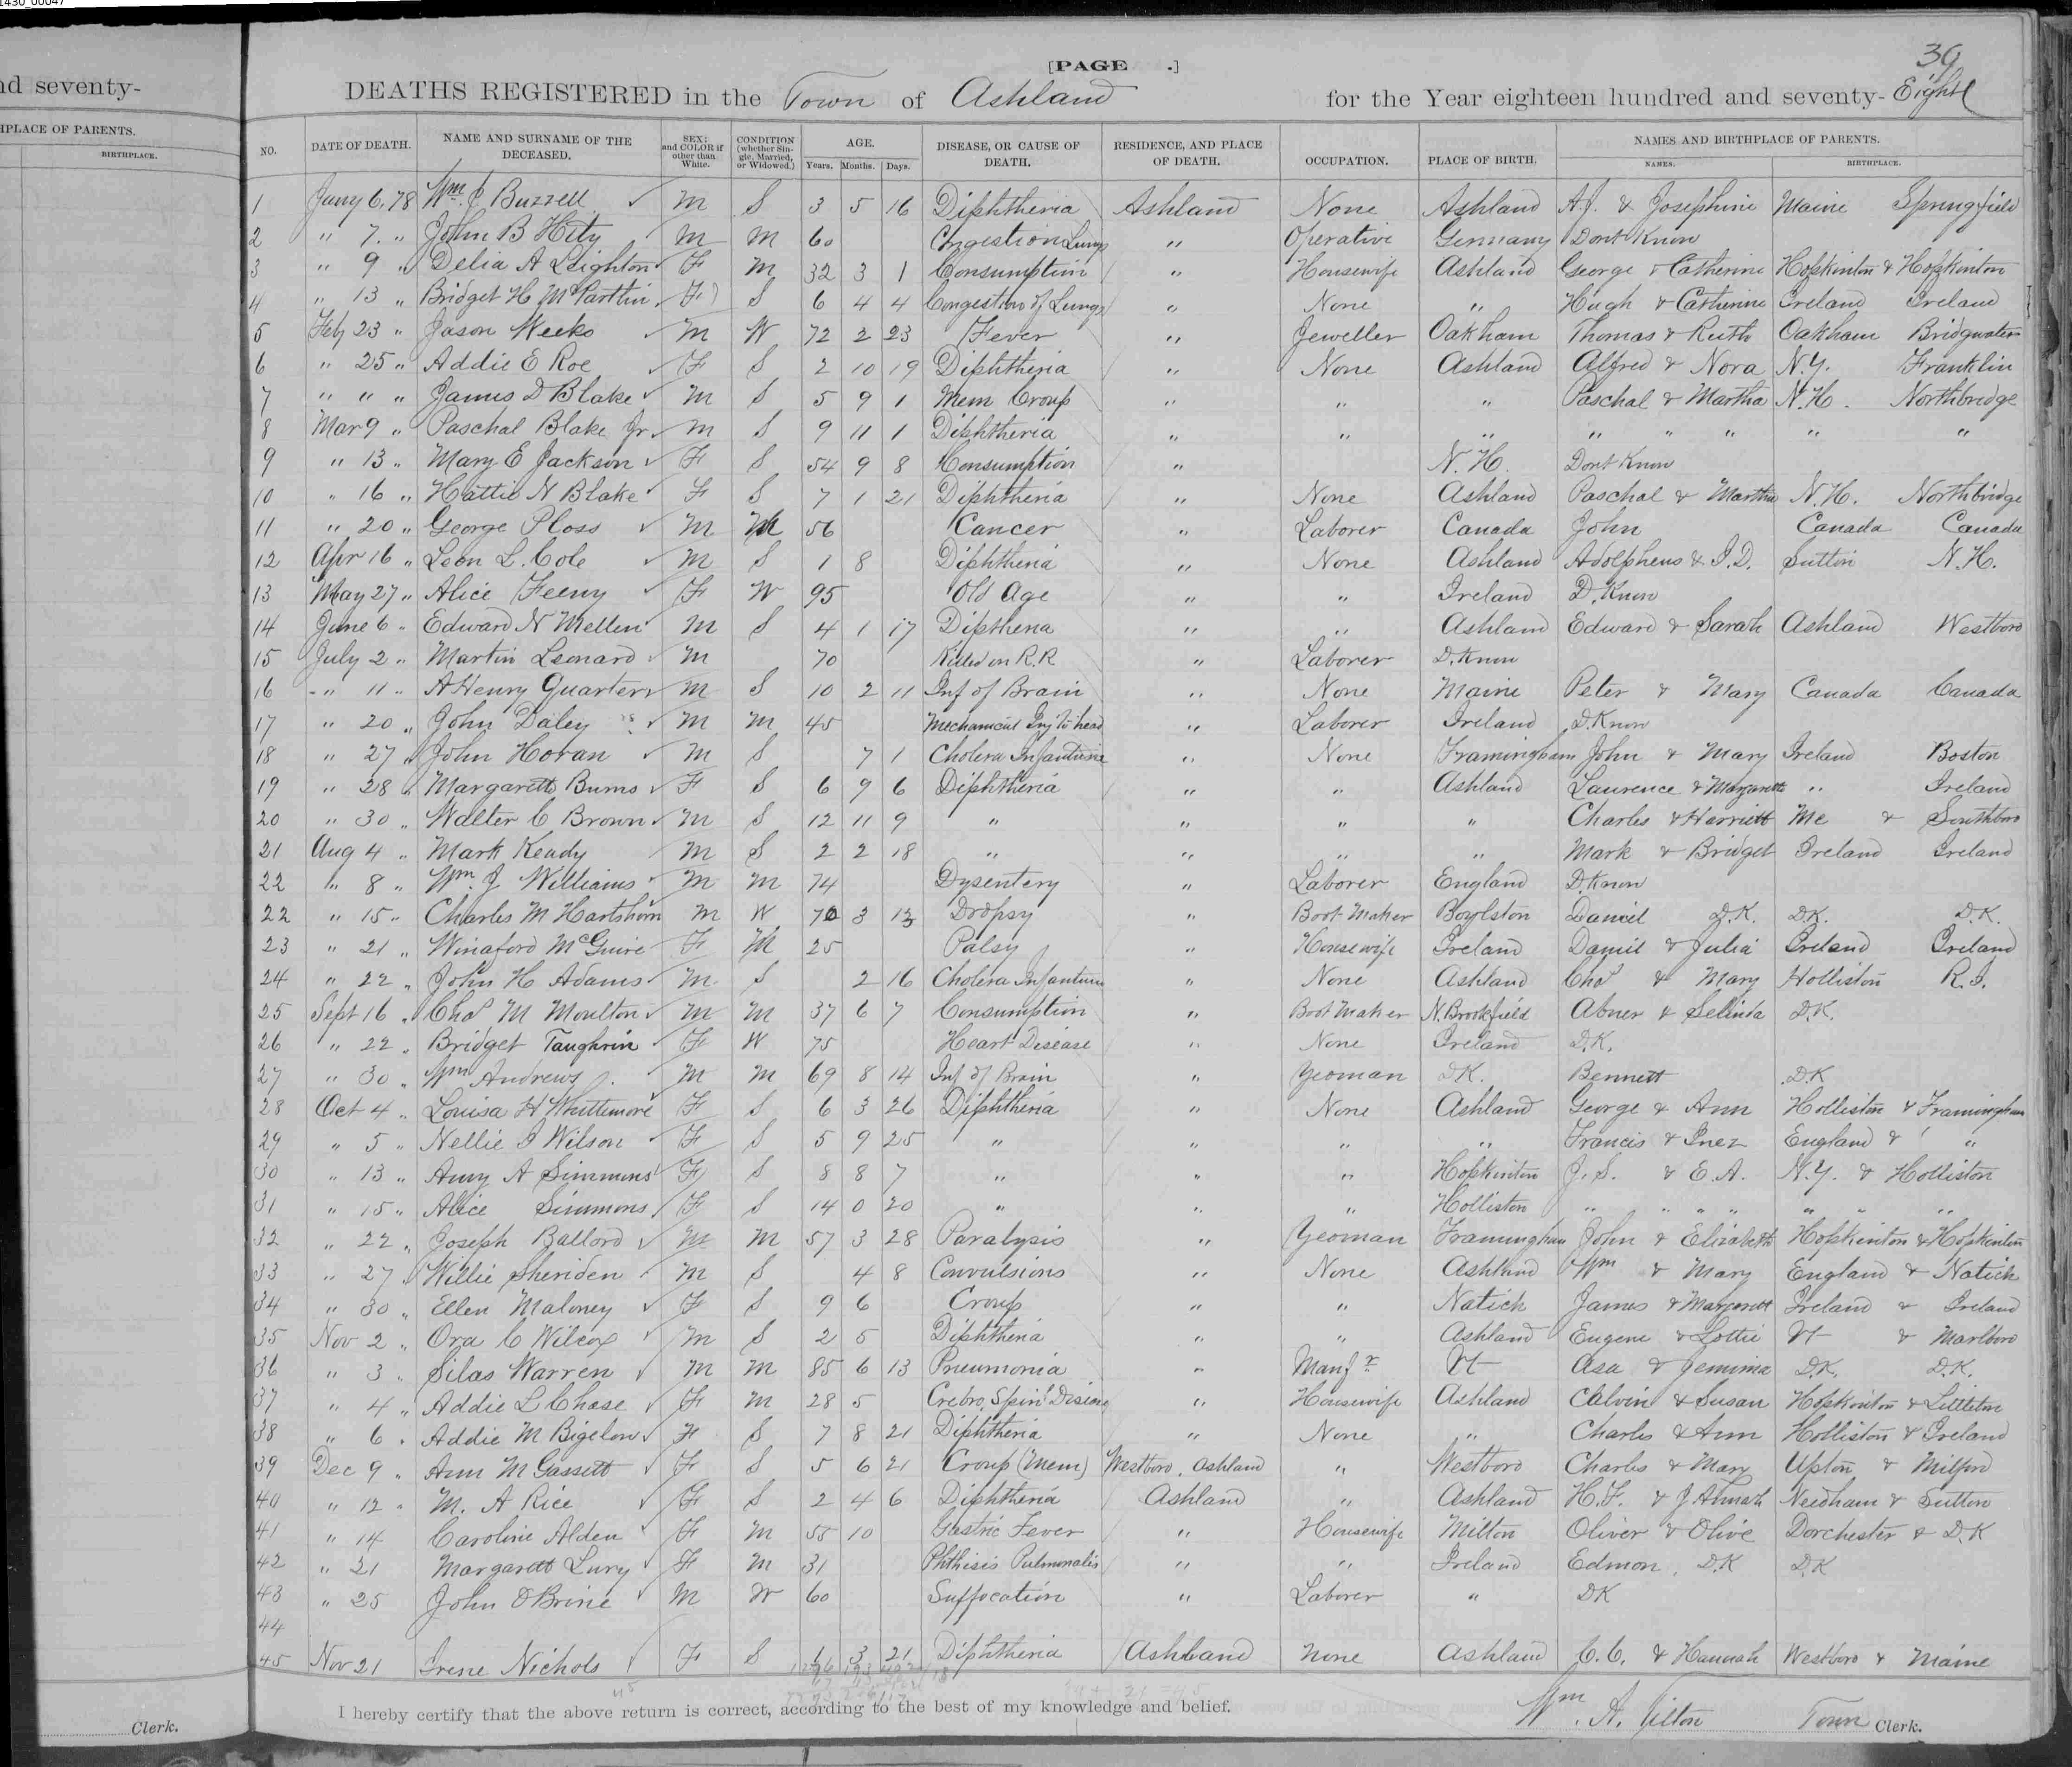 1430_00047
nd seventy-
HPLACE OF PARENTS.
BIRTHPLACE.
Clerk.
39
[PAGE .]
DEATHS REGISTERED in the Town of Ashland for the Year eighteen hundred and seventy-Eight
NO. DATE OF DEATH. NAME AND SURNAME OF THE DECEASED. SEX; and COLOR if other than White. CONDITION (whether Single, Married, or Widowed.) AGE. Years. Months. Days. DISEASE, OR CAUSE OF DEATH. RESIDENCE, AND PLACE OF DEATH. OCCUPATION. PLACE OF BIRTH. NAMES AND BIRTHPLACE OF PARENTS. NAMES. BIRTHPLACE.
1 Jany 6, 78 Wm. J Buzzell M S 3 5 16 Diphtheria Ashland None Ashland A.J. & Josephine Maine Springfield
2 " 7. " John B Hity M M 60 Congestion Lungs " Operative Germany Dont Know
3 " 9 " Delia A Leighton F M 32 3 1 Consumption " Housewife Ashland George & Catherine Hopkinton & Hopkinton
4 " 13 " Bridget H McPartlin F S 6 4 4 Congestion of Lungs " None " Hugh & Catherine Ireland Ireland
5 Feb 23 " Jason Weeks M W 72 2 23 Fever " Jeweller Oakham Thomas & Ruth Oakham Bridgwater
6 " 25 " Addie E Roe F S 2 10 19 Diphtheria " None Ashland Alfred & Nora N.Y. Franklin
7 " " " James D Blake M S 5 9 1 Mem Croup " " " Paschal & Martha N.H. Northbridge
8 Mar 9 " Paschal Blake Jr. M S 9 11 1 Diphtheria " " " " " " " "
9 " 13 " Mary E Jackson F S 54 9 8 Consumption " N.H. Dont Know
10 " 16 " Hattie N Blake F S 7 1 21 Diphtheria " None Ashland Paschal & Martha N.H. Northbridge
11 " 20 " George Ploss M M 56 Cancer " Laborer Canada John Canada Canada
12 Apr 16 " Leon L. Cole M S 1 8 Diphtheria " None Ashland Adolpheus & I.D. Sutton N.H.
13 May 27 " Alice Feeny F W 95 Old Age " " Ireland D. Know
14 June 6 " Edward N Mellen M S 4 1 17 Diptheria " " Ashland Edward & Sarah Ashland Westboro
15 July 2 " Martin Leonard M 70 Killed on R.R " Laborer D. Know
16 " 11 " A Henry Quarters M S 10 2 11 Inf of Brain " None Maine Peter & Mary Canada Canada
17 " 20 " John Daley M M 45 Mechanical Inj to head " Laborer Ireland D. Know
18 " 27 " John Horan M S 7 1 Cholera Infantum " None Framingham John & Mary Ireland Boston
19 " 28 " Margarett Burns F S 6 9 6 Diphtheria " " Ashland Laurence & Margarett " Ireland
20 " 30 " Walter C Brown M S 12 11 9 " " " " Charles & Harriett Me & Southboro
21 Aug 4 " Mark Keady M S 2 2 18 " " " " Mark & Bridget Ireland Ireland
22 " 8 " Wm. J Williams M M 74 Dysentery " Laborer England D. Know
22 " 15 " Charles M Hartshorn M W 70 3 13 Dropsy " Boot Maker Boylston Daniel D.K. D.K. D.K.
23 " 21 " Winaford McGuire F M 25 Palsy " Housewife Ireland Daniel & Julia Ireland Ireland
24 " 22 " John H Adams M. S 2 16 Cholera Infantum " None Ashland Chas & Mary Holliston R.I.
25 Sept 16 " Chas M Moulton M M 37 6 7 Consumption " Boot Maker N. Brookfield Abner & Selinda D.K.
26 " 22 " Bridget Taughrin F W 75 Heart Disease " None Ireland D.K.
27 " 30 " Wm Andrews M M 69 8 14 Inf of Brain " Yeoman D.K. Bennett D.K
28 Oct 4 " Louisa H Whittemore F S 6 3 26 Diphtheria " None Ashland George & Ann Holliston & Framingham
29 " 5 " Nellie I Wilson F S 5 9 25 " " " " Francis & Inez England & "
30 " 13 " Amy A Simmons F S 8 8 7 " " " Hopkinton J.S. & E.A. N.Y. & Holliston
31 " 15 " Alice Simmons F S 14 0 20 " " " Holliston " " " " " " "
32 " 22 " Joseph Ballord M M 57 3 28 Paralysis " Yeoman Framingham John & Elizabeth Hopkinton & Hopkinton
33 " 27 " Willie Sheriden M S 4 8 Convulsions " None Ashland Wm & Mary England & Natick
34 " 30 " Ellen Maloney F S 9 6 Croup " " Natick James & Margarett Ireland & Ireland
35 Nov 2 " Ora C Wilcox M S 2 5 Diphtheria " " Ashland Eugene & Lottie Vt & Marlboro
36 " 3 " Silas Warren M M 85 6 13 Pneumonia " Manfr Vt Asa & Jemima D.K. D.K.
37 " 4 " Addie L Chase F M 28 5 Crebro, Spinl Disease " Housewife Ashland Calvin & Susan Hopkinton & Littleton
38 " 6 " Addie M Bigelow F S 7 8 21 Diphtheria " None " Charles & Ann Holliston & Ireland
39 Dec 9 " Ann M Gassett F S 5 6 21 Croup (Mem) Westboro, Ashland " Westboro Charles & Mary Upton & Milford
40 " 12 " M. A Rice F S 2 4 6 Diphtheria Ashland " Ashland H.F. & J Annah Needham & Sutton
41 " 14 Caroline Alden F M 55 10 Gastric Fever " Housewife Milton Oliver & Olive Dorchester & D.K
42 " 21 Margarett Lury F M 31 Phthisis Pulmonalis " " Ireland Edmon, D.K D.K
43 " 25 John OBrine M W 60 Suffocation " Laborer " DK
44
45 Nov 21 Irene Nichols F S 1 3 21 Diphtheria Ashland None Ashland C.C. & Hannah Westboro & Maine
I hereby certify that the above return is correct, according to the best of my knowledge and belief.
Wm. A. Tilton Town Clerk.